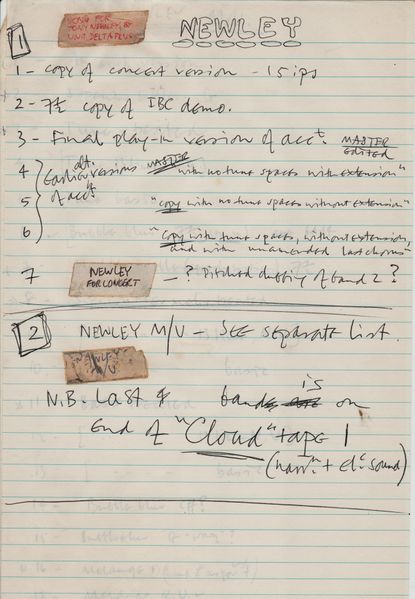 1
SONG FOR
TONY NEWLEY, BY
UNIT DELTA PLUS
NEWLEY
1 - copy of concert version - 15 ips
2 - 7½ copy of IBC demo.
3 - Final play-in version of acct. MASTER
edited
4 Earlier alt. versions of acct MASTER "with no tune spaces with extension"
5 "copy with no tune spaces without extension"
6 "copy with tune spaces, without extension,
and with unamended last chorus"
7 NEWLEY
FOR CONCERT
- ? Pitched dubbing of band 2 ?
2 NEWLEY M/U - SEE separate list.
NEWLEY
M/U
N.B. Last band is on
end of "Cloud" tape 1
(narrn. + elc sound)